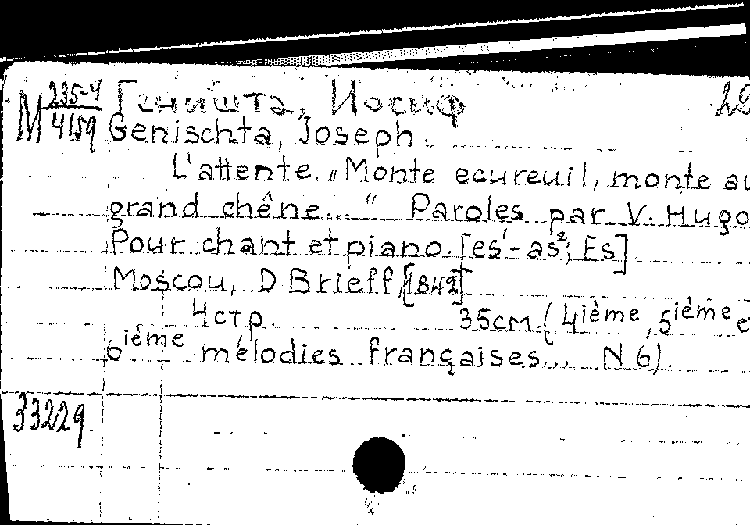 М 235-4/4159 Геништа, Иосиф
Genischta, Joseph.
L'attente. „Monte ecureuil, monte au
grand chêne..." Paroles par V. Hugo
Pour chant et piano. [es¹-as²; Es]
Moscou, D Brieff, [842]
4стр 35см. (4ième, 5ième e
6ième mélodies françaises... N 6)
33229